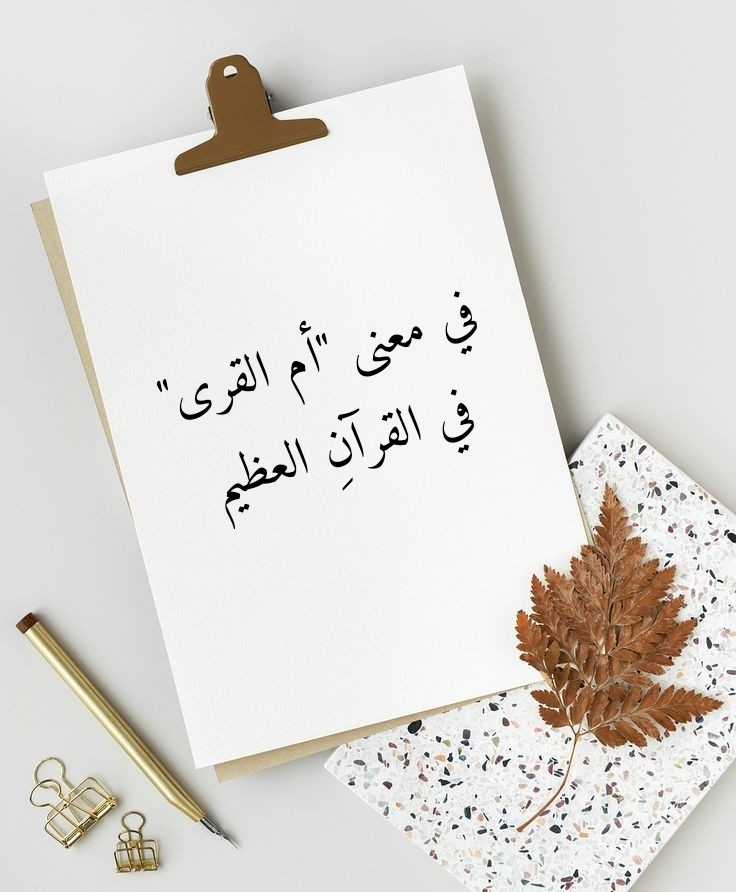 في معنى "أم القرى"
في القرآنِ العظيم